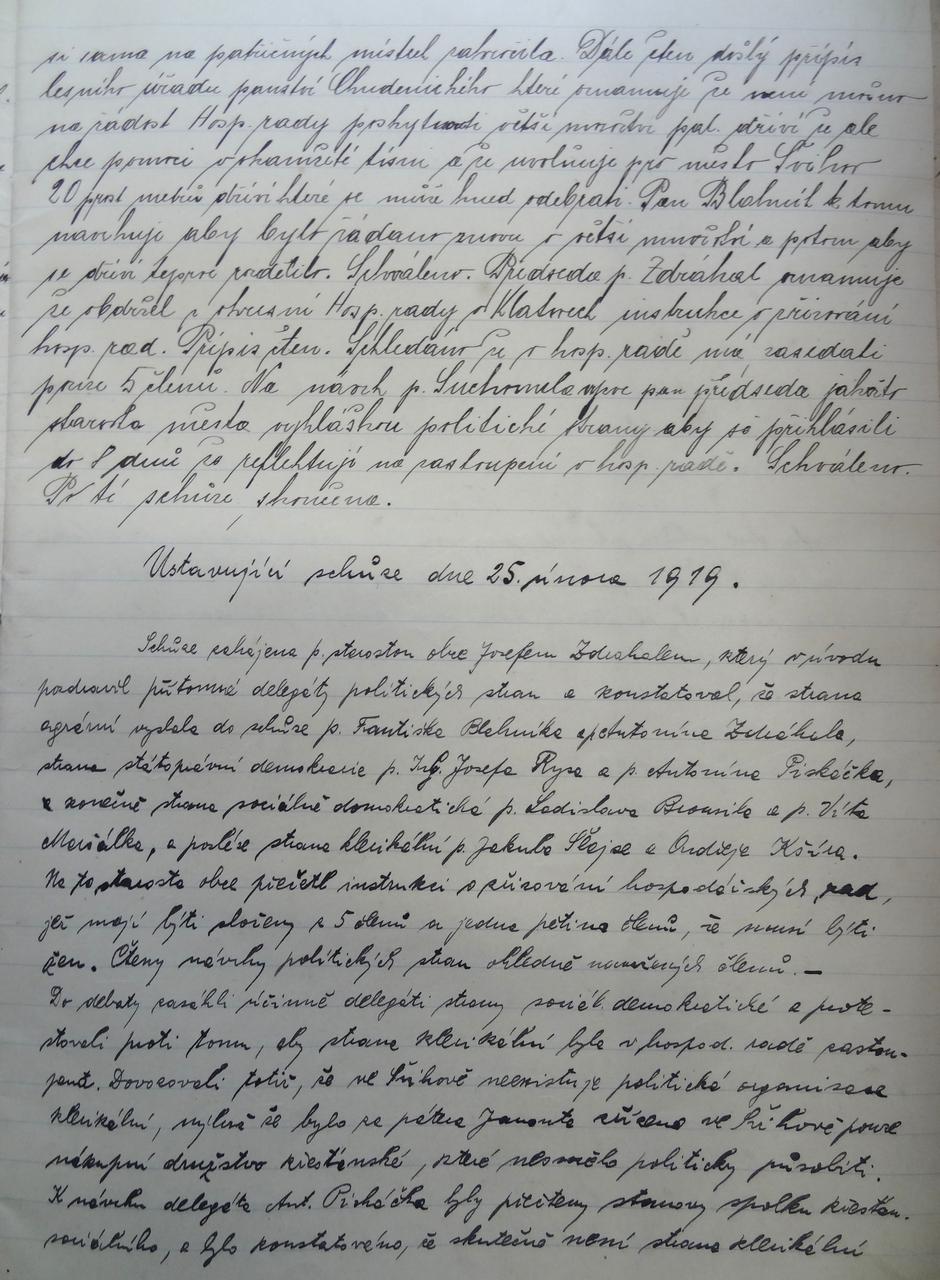 si sama na patřičných místech zakročila. Dále čten došlý přípis
lesního úřadu panství Chudenického které oznamuje že není možno
na žádost Hosp. rady poskytnouti větší množství pal. dříví že ale
chce pomoci v okamžité tísni a že uvolňuje pro město Švihov
20 prost metrů dříví které se může hned odebrati. Pan Blahník k tomu
navrhuje aby bylo žádáno znovu o větší množství a potom aby
se dříví teprve rozdělilo. Schváleno. Předseda p. Zdráhal oznamuje
že obdržel z okresní Hosp. rady v Klatovech instrukce o zřizování
hosp. rad. Přípis čten. Shledáno že v hosp. radě má zasedati
pouze 5 členů. Na návrh p. Suchomela vyzve pan předseda jakožto
starosta města vyhláškou politické strany aby se přihlásili
do 8 dnů zo reflektují na zastoupení v hosp. radě. Schváleno.
Po té schůze skončena.
Ustavující schůze dne 25. února 1919.
Schůze zahájena p. starostou obce Josefem Zdráhalem, který v úvodu
pozdravil přítomné delegáty politických stran a konstatoval, že strana
agrární vyslala do schůze p. Františka Blahníka a p. Antonína Zdráhala,
strana státoprávní demokracie p. Ing. Josefa Rysa a p. Antonína Piskáčka,
a konečně strana sociálně domokratická p. Ladislava Brousila a p. Víta
Maršálka, a posléze strana klerikální p. Jakuba Šlajse a Ondřeje
Na to starosta obce přečetl instrukci o zřizování hospodářských rad,
jež mají býti složeny z 5 členů a jedna pětina členů, že musí býti
žen. Čteny návrhy politických stran ohledně navržených členů. —
Do debaty zasáhli účinně delegáti strany sociál. demokratické a prote-
stovali proti tomu, aby strana klerikální byla v hospod. radě zastou-
pena. Dovozovali totiž, že ve Švihově neexistuje politická organisace
klerikální, nýbrž že bylo za pátera zřízeno ve Švihově pouze
nákupní družstvo křesťanské, které nesmělo politicky působiti.
K návrhu delegáta Ant. Piskáčka byly přečteny stanovy spolku křesťan.
sociálního, a bylo konstatováno, že skutečně není strana klerikální